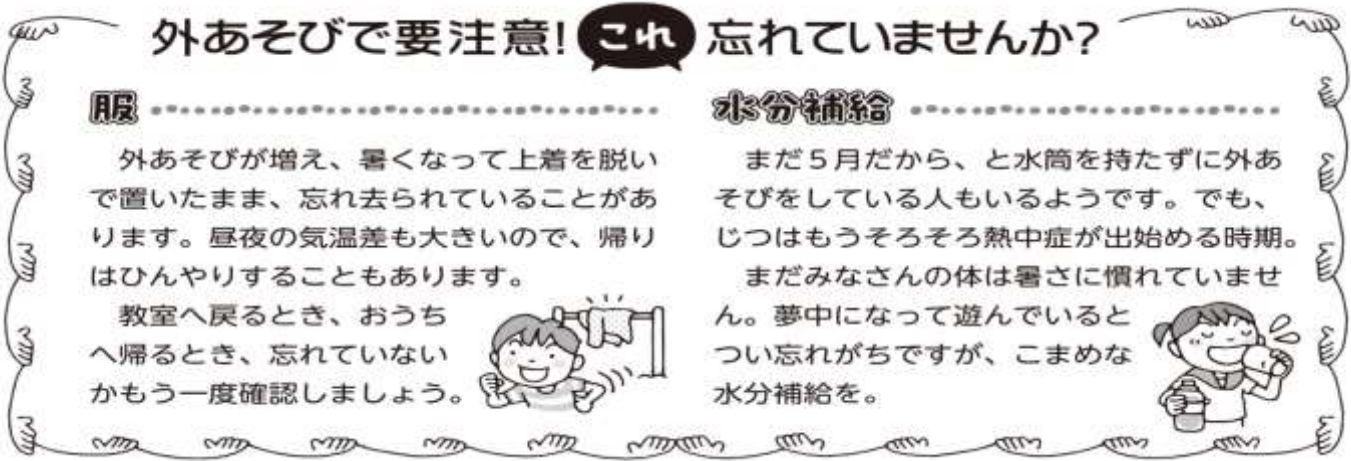 外あそびで要注意!これ忘れていませんか?
服
外あそびが増え、暑くなって上着を脱い
で置いたまま、忘れ去られていることがあ
ります。昼夜の気温差も大きいので、帰り
はひんやりすることもあります。
教室へ戻るとき、おうち
へ帰るとき、忘れていない
かもう一度確認しましょう。
水分補給
まだ5月だから、と水筒を持たずに外あ
そびをしている人もいるようです。でも、
じつはもうそろそろ熱中症が出始める時期。
まだみなさんの体は暑さに慣れていませ
ん。夢中になって遊んでいると
つい忘れがちですが、こまめな
水分補給を。